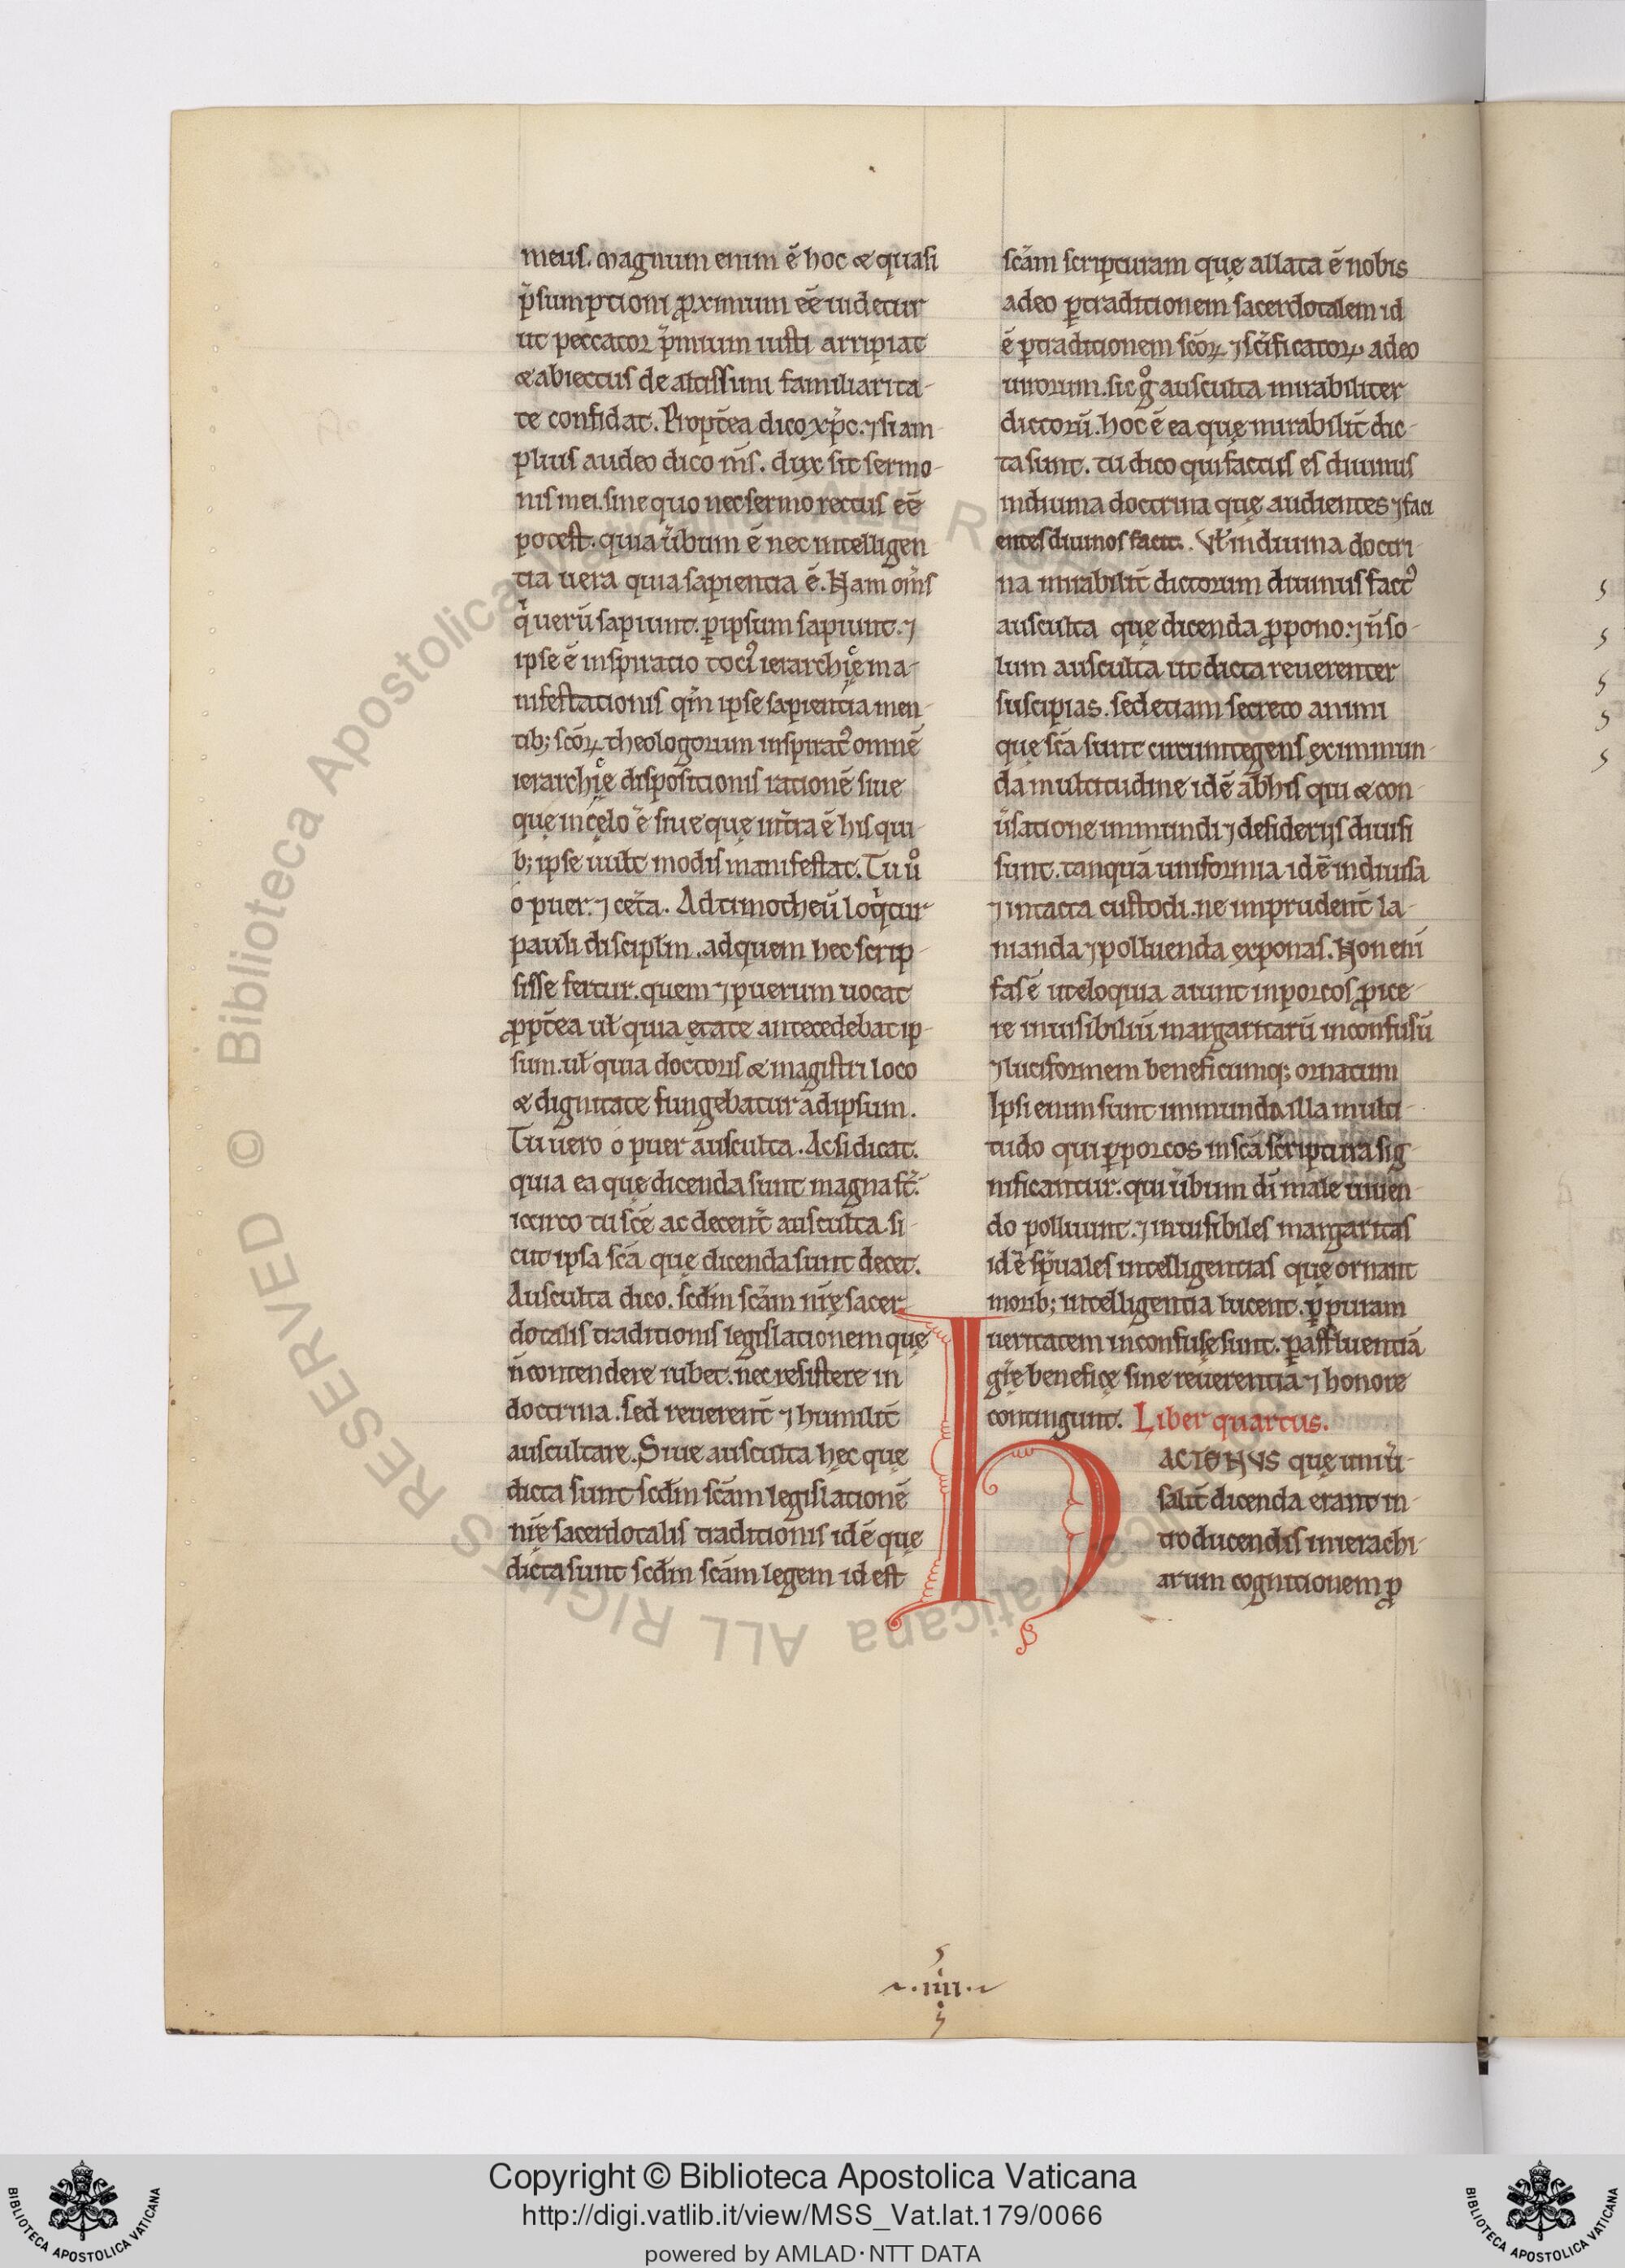 meus. Magnum enim ē hoc & quasi
p̄sumptioni ꝓximum eē uidetur
ut peccator p̄mium iusti arripiat
& abiectus de altissimi familiarita-
te confidat. Propt̄ea dico xp̄c. ⁊ si am-
plius audeo dico m̄s. dux sit sermo-
nis mei. sine quo nec sermo rectus eē
potest. quia ūbum ē nec intelligen
tia uera quia sapientia ē. Nam om̄s
qͥ uerū sapiunt. ꝑ ipsum sapiunt. ⁊
ipse ē inspiratio tociꝰ ierarchicę ma-
nifestationis qm̄ ipse sapientia men-
tib; scōꝝ theologorum inspiratꝰ omnē
ierarchicę dispositionis rationē siue
que in cęlo ē siue quę int̄ra ē his qui-
b; ipse uult modis manifestat. Tu ūo
o puer. ⁊ cet̄a. Ad timotheū loqͥtur
pauli discipl̄m. ad quem hec scrip-
sisse fertur. quem ⁊ puerum uocat
ꝓpt̄ea ul̄ quia ętate antecedebat ip-
sum. ul̄ quia doctoris & magistri loco
& dignitate fungebatur ad ipsum.
Tu uero o puer ausculta. Ac si dicat.
quia ea quę dicenda sunt magna st̄.
iccirco tu scē ac decent̄ ausculta. si-
cut ipsa scā quę dicenda sunt decet.
Ausculta dico. scd̄m scām nr̄ę sacer
dotalis traditionis legislationem quę
n̄ contendere iubet. nec resistere in
doctrina. sed reuerent̄ ⁊ humilit̄
auscultare. Siue ausculta hęc quę
dicta sunt scd̄m scām legislationē
nr̄ę sacerdotalis traditionis id ē quę
dicta sunt scd̄m scām legem id est
scām scripturam quę allata ē nobis
a deo ꝑ traditionem sacerdotalem id
ē ꝑ traditionem scōꝝ ⁊ scīficatoꝝ a deo
uirorum. sic gͦ ausculta mirabiliter
dictorū. hoc ē ea quę mirabilit̄ dic-
ta sunt. tu dico qui factus es diuinus
in diuina doctrina quę audientes ⁊ faci
entes diuinos facit. Vl̄ in diuina doctri-
na mirabilit̄ dictorum diuinus factꝰ
ausculta quę dicenda ꝓpono. ⁊ n̄ so-
lum ausculta ut dicta reuerenter
suscipias. sed etiam secreto animi
quę scā sunt circumtegens ex immun-
da multitudine id ē ab his qui & con-
ūsatione immundi ⁊ desiderijs diuisi
sunt. tanquā uniformia id ē indiuisa
⁊ intacta custodi. ne imprudent̄ la-
nianda ⁊ polluenda exponas. Non eni
fas ē ut eloquia aiunt in porcos ꝓice-
re inuisibiliū margaritarū inconfusū
⁊ luciformem beneficumq; ornatum
Ipsi enim sunt immunda illa multi-
tudo qui ꝑ porcos in scā scriptura sig-
nificantur. qui ūbum dī male uiuen-
do polluunt. ⁊ inuisibiles margaritas
id ē sp̄uales intelligentias quę ornant
morib; intelligentia lucent. ꝑ puram
ueritatem inconfusę sunt. ꝑ affluentiā
gr̄ę beneficę sine reuerentia ⁊ honore
contingunt. Liber quartus.
HACTENVS quę uniū-
salit̄ dicenda erant in-
troducendis in ierachi-
arum cognitionem ꝓ
.iiii.
© Biblioteca Apostolica Vaticana ALL RIGHTS RESERVED
Copyright © Biblioteca Apostolica Vaticana
http://digi.vatlib.it/view/MSS_Vat.lat.179/0066
powered by AMLAD·NTT DATA
BIBLIOTECA APOSTOLICA VATICANA
BIBLIOTECA APOSTOLICA VATICANA